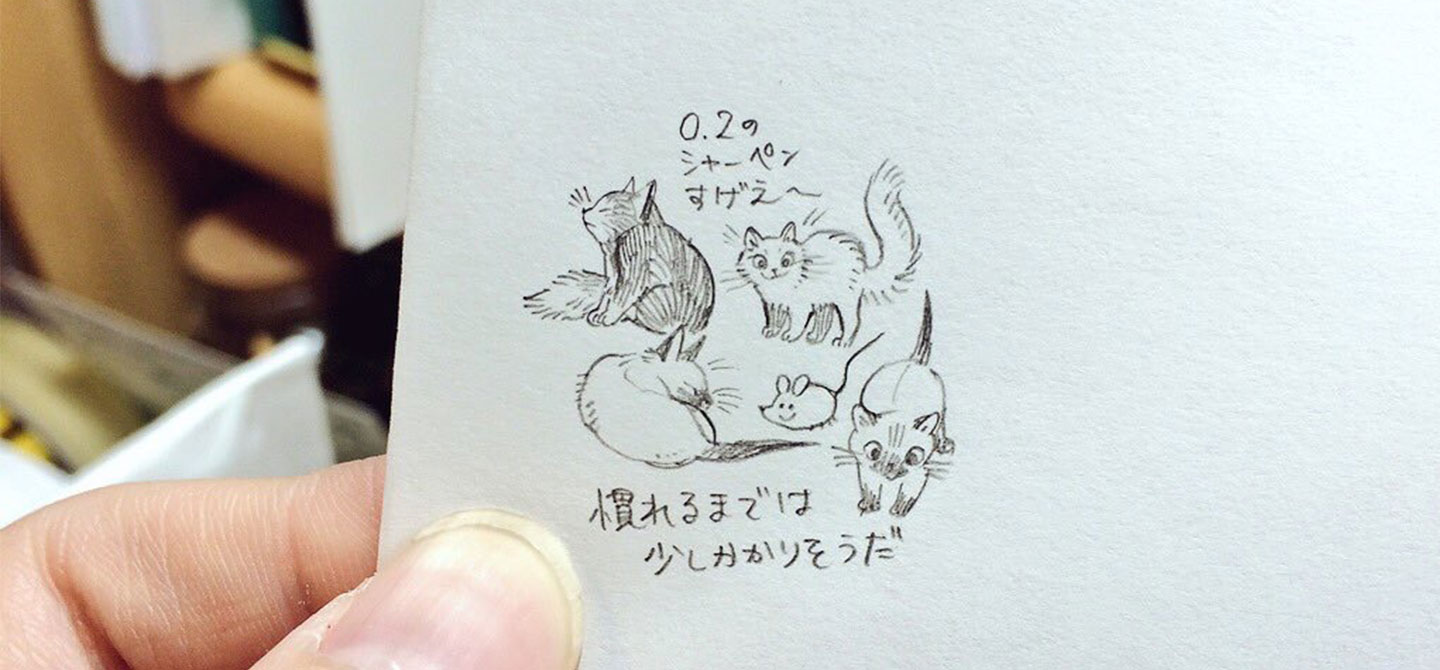 0.2の
シャーペン
すげえ〜
慣れるまでは
少しかかりそうだ